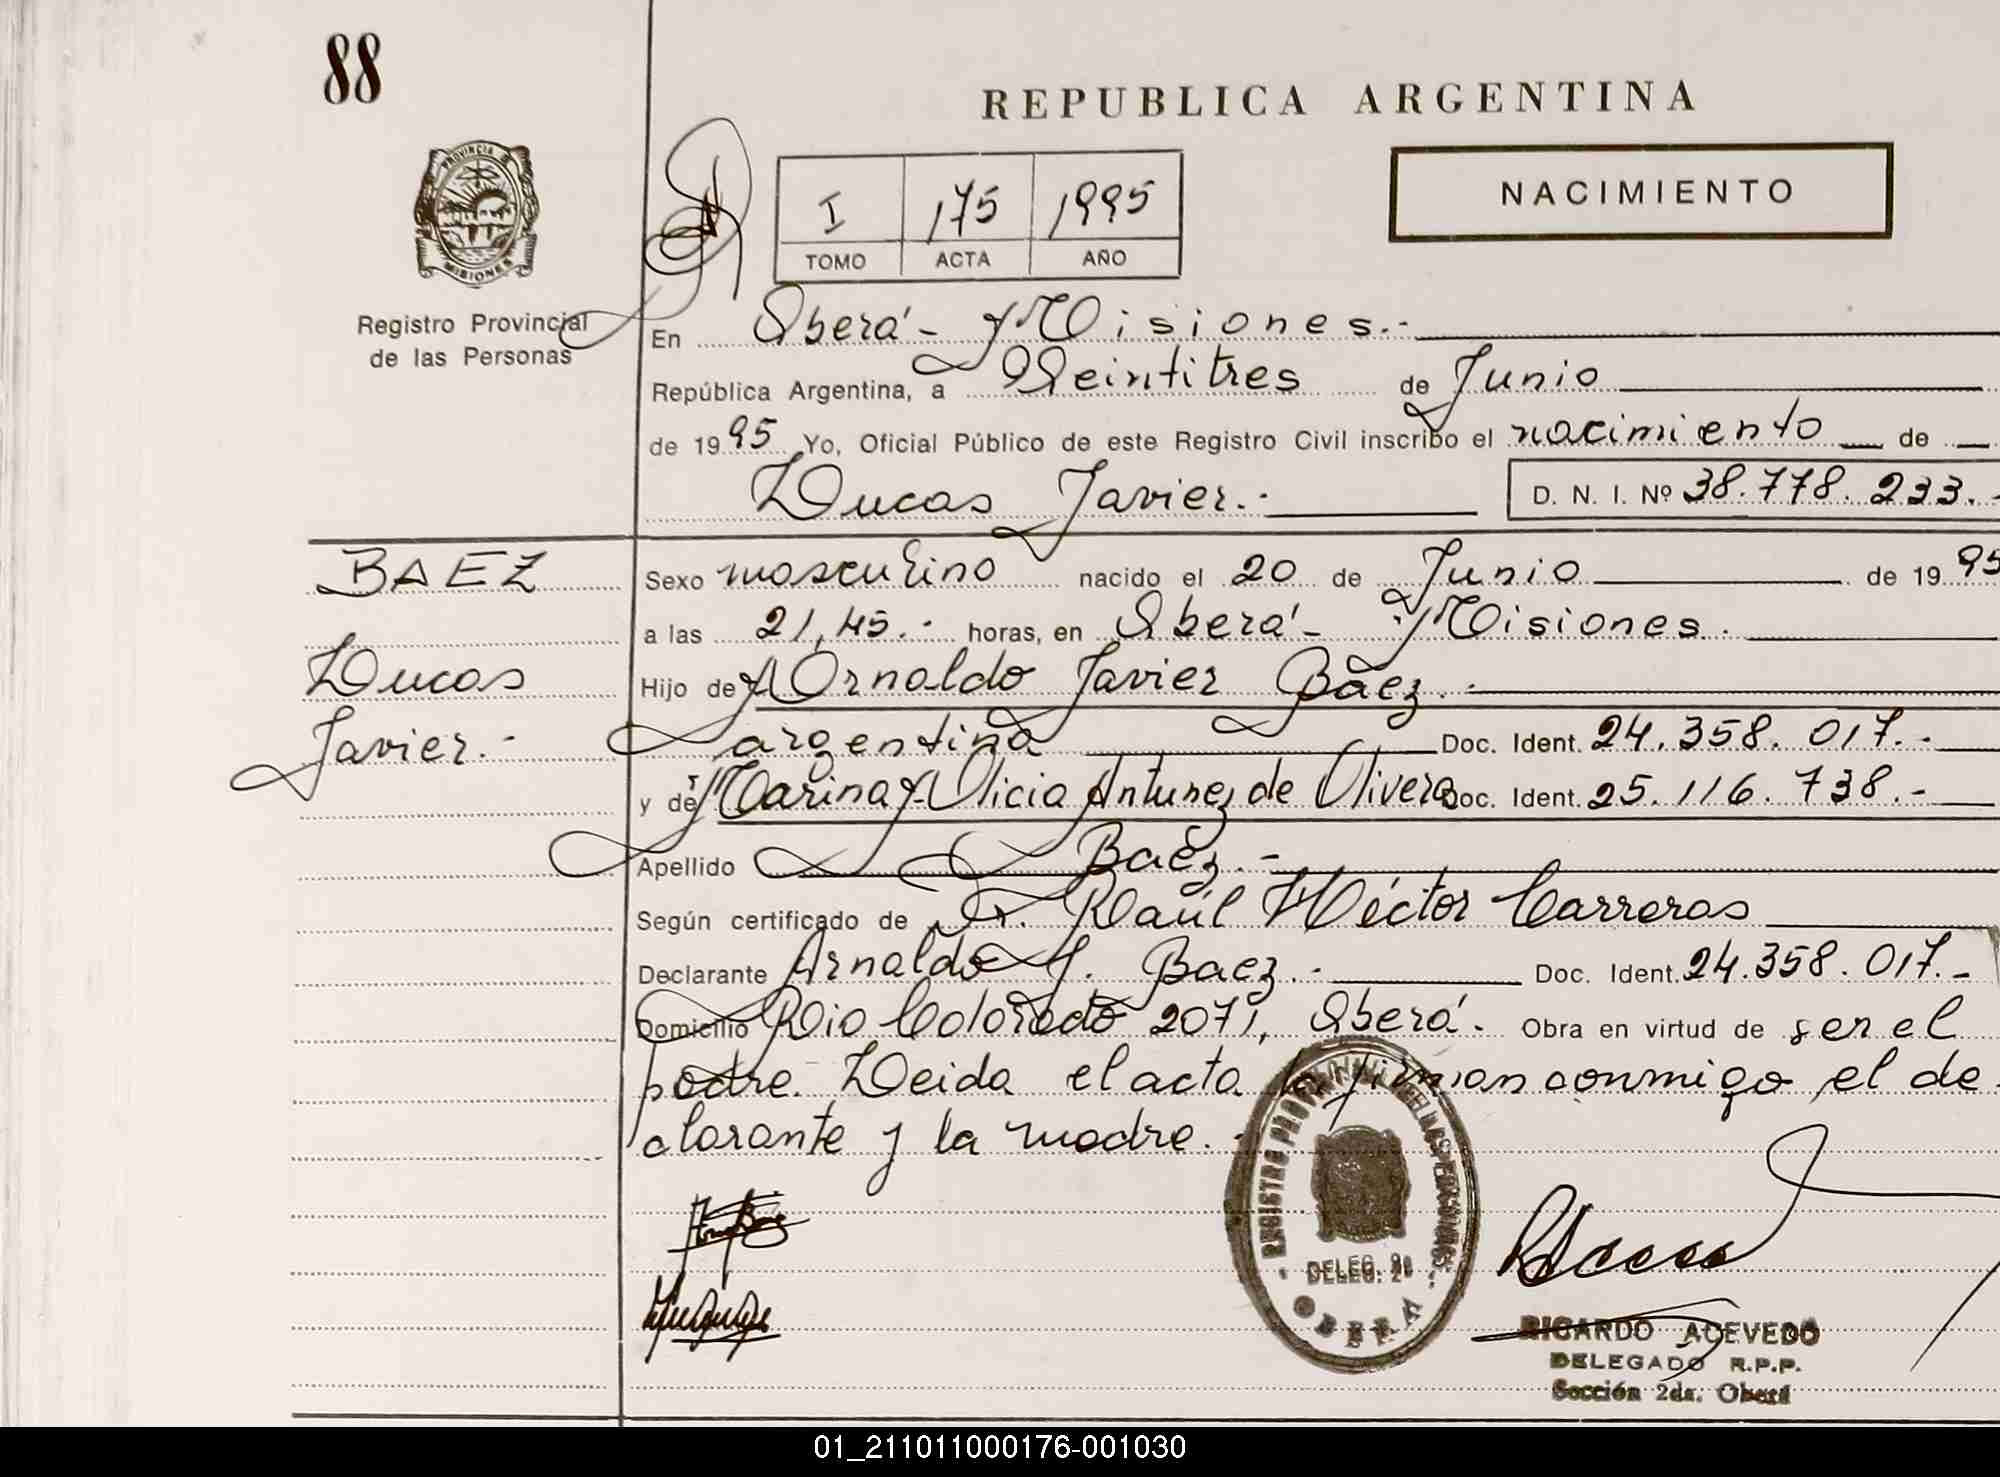 88
REPUBLICA ARGENTINA
PROVINCIA DE
MISIONES
I 175 1995
TOMO ACTA AÑO
NACIMIENTO
Registro Provincial
de las Personas
En Oberá - Misiones.-
República Argentina, a Veintitres de Junio
de 1995 Yo, Oficial Público de este Registro Civil inscribo el nacimiento de
Lucas Javier.- D. N. I. Nº 38.778.233.-
BAEZ
Lucas
Javier.-
Sexo masculino nacido el 20 de Junio de 1995
a las 21,45.- horas, en Oberá - Misiones.
Hijo de Arnaldo Javier Báez.-
argentina Doc. Ident. 24.358.017.-
y de Marina Alicia Antunez de Olivera Doc. Ident. 25.116.738.-
Apellido Baéz.-
Según certificado de Dr. Raúl Héctor Carreras
Declarante Arnaldo J. Baez.- Doc. Ident. 24.358.017.-
Domicilio Rio Colorado 2071, Oberá. Obra en virtud de ser el
padre. Leida el acta la firman conmigo el de
clarante y la madre.-
REGISTRO PROVINCIAL DE LAS PERSONAS
DELEG. 2a
OBERA
RICARDO ACEVEDO
DELEGADO R.P.P.
Sección 2da. Oberá
01_211011000176-001030